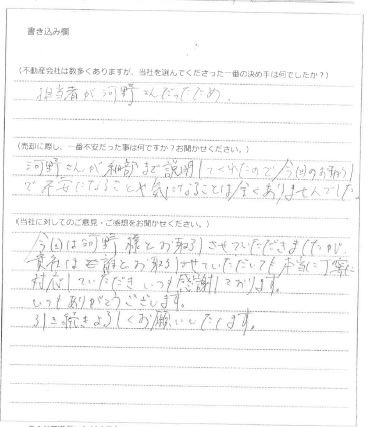 書き込み欄
(不動産会社は数多くありますが、当社を選んでくださった一番の決め手は何でしたか?)
担当者が河野さんだったため。
(売却に際し、一番不安だった事は何ですか?お聞かせください。)
河野さんが細部まで説明してくれたので今回のお取引
で不安になることや気になることは全くありませんでした。
(当社に対してのご意見・ご感想をお聞かせください。)
今回は河野様とお取引させていただきましたが、
貴社はどの誰とお取引させていただいても本当に丁寧に
対応していただきいつも感謝しております。
いつもありがとうございます。
引き続きよろしくお願いいたします。